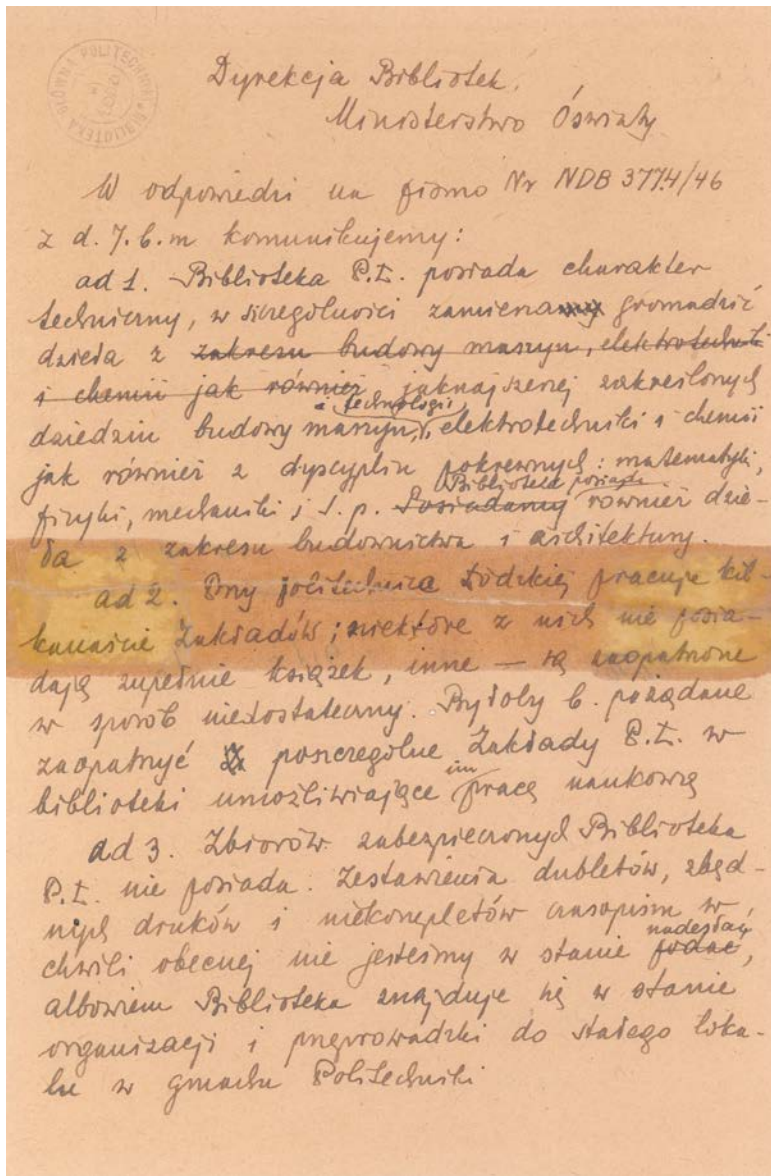 BIBLIOTEKA GŁÓWNA POLITECHNIKI
Dyrekcja Bibliotek.
Ministerstwo Oświaty
W odpowiedzi na pismo Nr NDB 3774/46
z d. 7.b.m komunikujemy:
ad 1. Biblioteka P.Ł. posiada charakter
techniczny, w szczególności zamierza gromadzić
dzieła z zakresu budowy maszyn, elektrotechniki
i chemii jak również jaknajszerzej zakreślonych
i technologii
dziedzin budowy maszyn, elektrotechniki i chemii
jak również z dyscyplin pokrewnych: matematyki,
Biblioteka posiada
fizyki, mechaniki i t. p. Posiadamy również dzie-
ła z zakresu budownictwa i architektury.
ad 2. Przy politechnice Łódzkiej pracuje kil-
kanaście Zakładów; niektóre z nich nie posia-
dają zupełnie książek, inne — są zaopatrzone
w sposób niedostateczny. Byłoby b. pożądane
zaopatrzyć poszczególne Zakłady P.Ł. w
im
biblioteki umożliwiające pracę naukową
ad 3. Zbiorów zabezpieczonych Biblioteka
P.Ł. nie posiada. Zestawienia dubletów, zbęd-
nych druków i niekompletów czasopism w
nadesłać
chwili obecnej nie jesteśmy w stanie podać,
albowiem Biblioteka znajduje się w stanie
organizacji i przeprowadzki do stałego loka-
lu w gmachu Politechniki